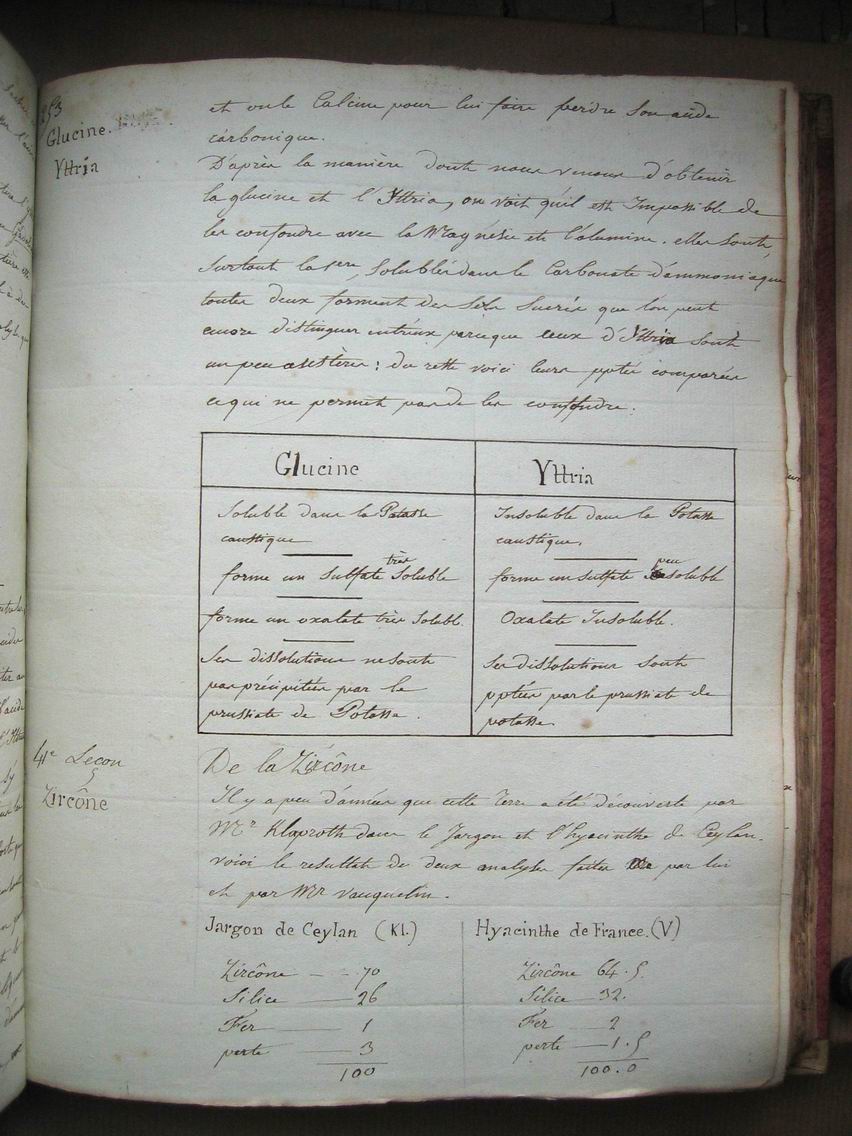 253
Glucine.
Yttria
et on le Calcine pour lui faire perdre son acide
carbonique.
D'après la manière dont nous venons d'obtenir
la glucine et l'Yttria, on voit qu'il est Impossible de
les confondre avec la Magnésie et l'alumine. elles sont,
surtout la 1ere, solubles dans le Carbonate d'ammoniaque
toutes deux forment des Sels Sucrés que l'on peut
encore distinguer entr'eux parceque ceux d'Yttria sont
un peu : du reste voici leurs pptés comparées
ce qui ne permet pas de les confondre.
Glucine
Soluble dans la Potasse
caustique
forme un sulfate très Soluble
forme un oxalate très Soluble.
Ses dissolutions ne sont
pas précipitées par le
prussiate de Potasse.
Yttria
Insoluble dans la Potasse
caustique.
forme un sulfate peu soluble
Oxalate Insoluble.
Ses dissolutions sont
pptées par le prussiate de
potasse.
41e Leçon
Zircône
De la Zircône
Il y a peu d'années que cette Terre a été découverte par
Mr Klaproth dans le Jargon et l'hyacinthe de Ceylan.
voici le resultat de deux analyses faites par lui
et par Mr Vauquelin.
Jargon de Ceylan (Kl.)
Zircône 70
Silice 26
Fer 1
perte 3
100
Hyacinthe de France. (V)
Zircône 64.5
Silice 32.
Fer 2
perte 1.5
100.0